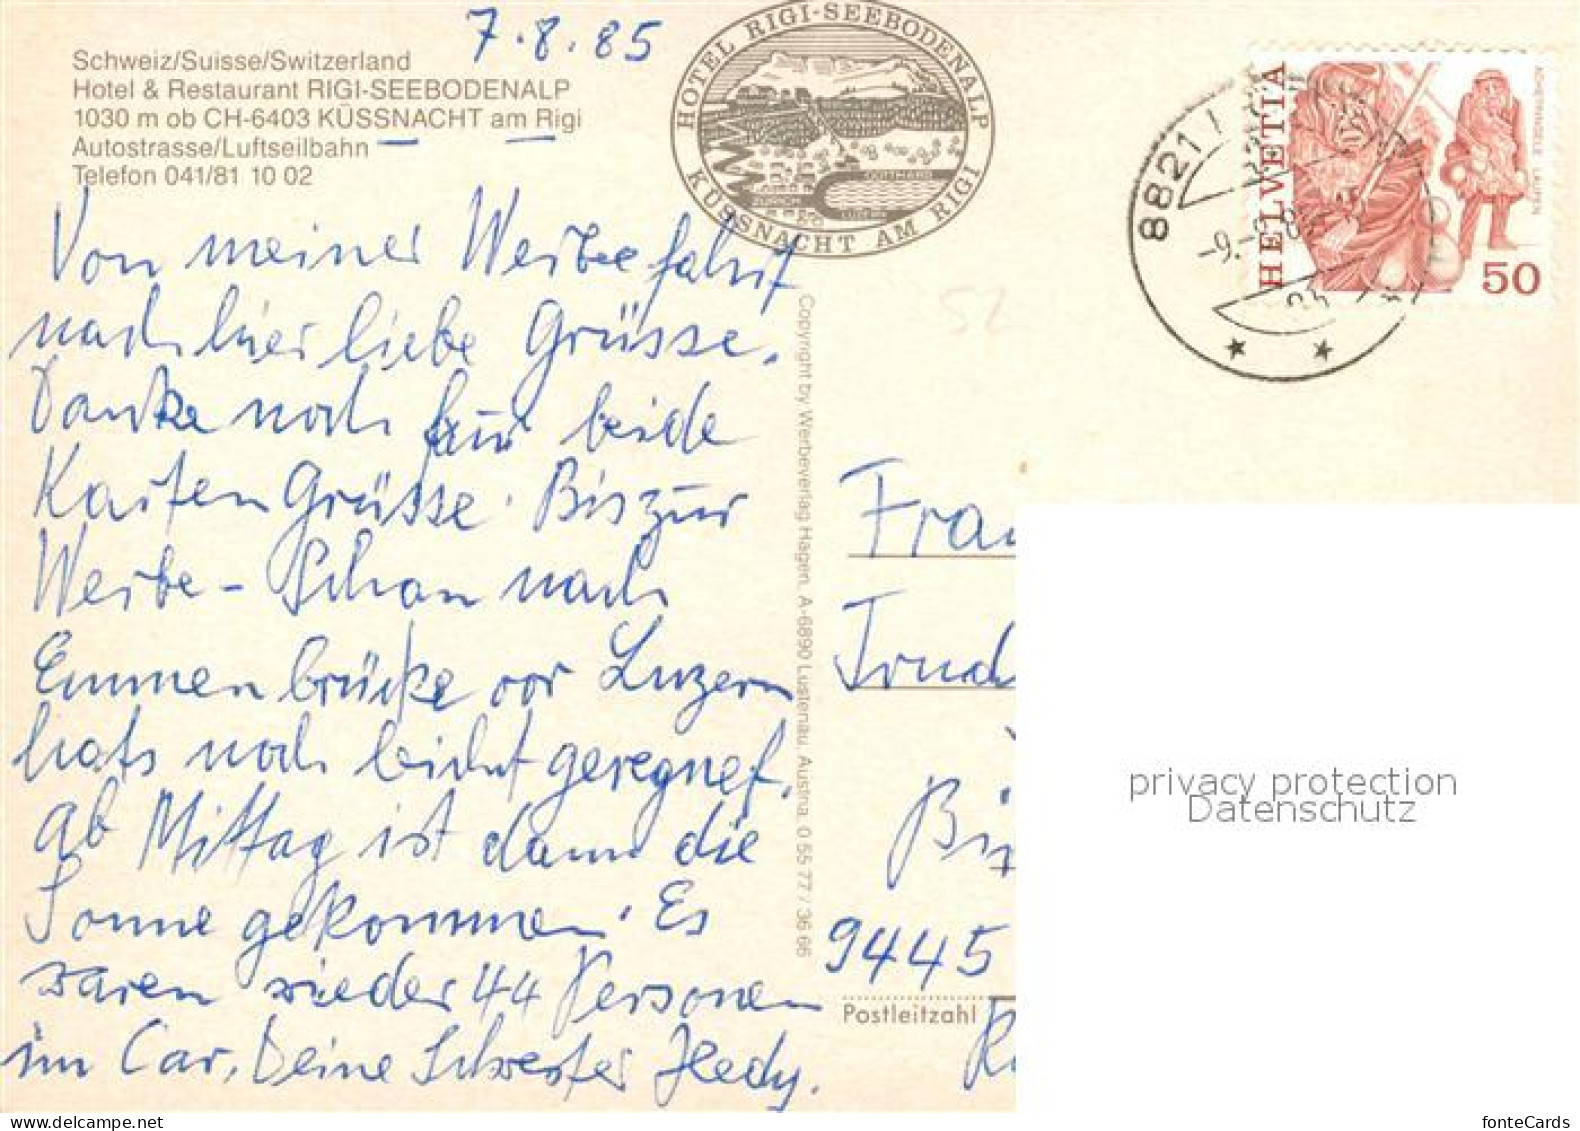 7.8.85
Schweiz/Suisse/Switzerland
Hotel & Restaurant RIGI-SEEBODENALP
1030 m ob CH-6403 KÜSSNACHT am Rigi
Autostrasse/Luftseilbahn
Telefon 041/81 10 02
HOTEL RIGI-SEEBODENALP
KÜSSNACHT AM RIGI
GOTTHARD
8821
-9.-8.85
HELVETIA
50
52
Von meiner Werbefahrt
nach hier liebe Grüsse.
Danke noch für beide
Karten Grüsse. Bis zur
Werbe-Schau nach
Emmenbrücke vor Luzern
hats noch leicht geregnet.
ab Mittag ist dann die
Sonne gekommen. Es
waren wieder 44 Personen
im Car. Deine Schwester Hedy.
Copyright by Werbeverlag Hagen, A-6890 Lustenau, Austria, 0 55 77 / 36 66
Frau
Trud
9445
Postleitzahl
privacy protection
Datenschutz
fonteCards